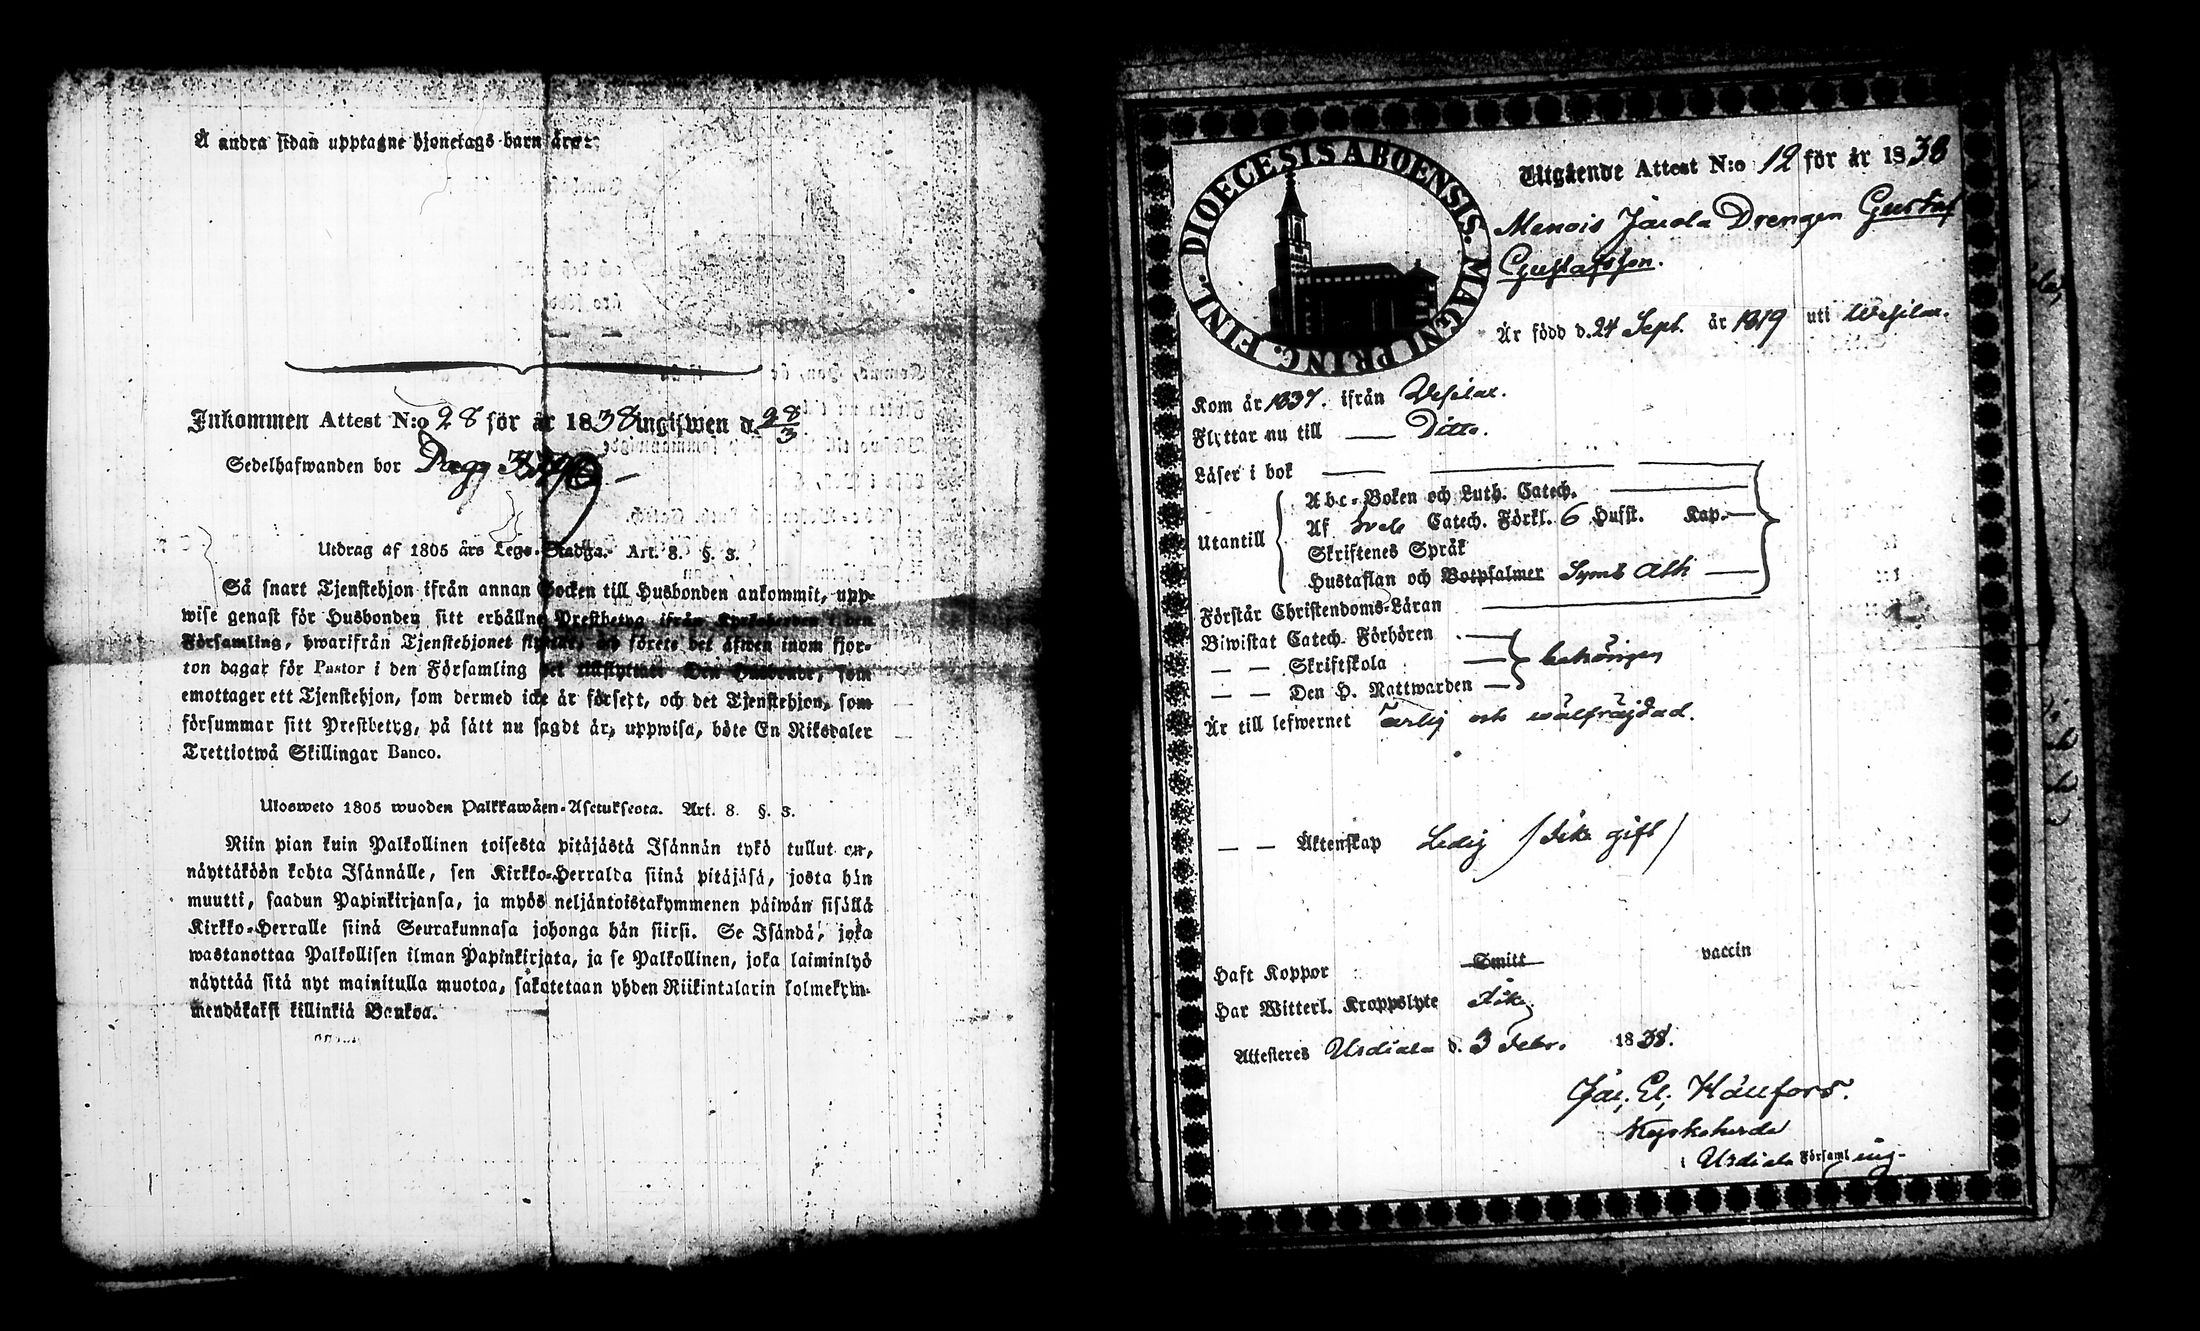 Å andra sidan upptagne hjonelags barn äro:
Inkommen Attest N:o 28 för år 1838 ingifwen d. 28/3
Sedelhafwanden bor Pag
Utdrag af 1805 års Lego-Stadga. Art. 8. §. 3.
Så snart Tjenstehjon ifrån annan Socken till Husbonden ankommit, upp-
wise genast för Husbonden sitt erhållne Prestbetyg ifrån Kyrkoherden i den
Församling, hwarifrån Tjenstehjonet flyttat, och förete det äfwen inom fjor-
ton dagar för Pastor i den Församling det tillflyttat. Den Husbonde, som
emottager ett Tjenstehjon, som dermed icke är försett, och det Tjenstehjon, som
försummar sitt Prestbetyg, på sätt nu sagdt är, uppwisa, böte En Riksdaler
Trettiotwå Skillingar Banco.
Ulosweto 1805 wuoden Palkkawäen-Asetuksesta. Art. 8. §. 3.
Niin pian kuin Palkollinen toisesta pitäjästä Isännän tykö tullut on,
näyttäköön kohta Isännälle, sen Kirkko-Herralda siinä pitäjäsä, josta hän
muutti, saadun Papinkirjansa, ja myös neljäntoistakymmenen päiwän sisällä
Kirkko-Herralle siinä Seurakunnasa johonga hän siirsi. Se Isändä, joka
wastanottaa Palkollisen ilman Papinkirjata, ja se Palkollinen, joka laiminlyö
näyttää sitä nyt mainitulla muotoa, sakotetaan yhden Riikintalarin kolmekym-
mendäkaksi killinkiä Bankoa.
DIOECESIS ABOENSIS. MAGNI PRINC. FINL.
Utgående Attest N:o 12 för år 1838
Menois Jarola Drengen Gustaf
Gustafsson.
Är född d. 24 Sept. år 1819 uti Wesilax.
Kom år 1837. ifrån Wesilax.
Flyttar nu till — Ditto.
Läser i bok
Abc-Boken och Luth. Catech.
Utantill Af Sveb Catech. Förkl. 6 Hufst. Kap.
Skriftenes Språk
Hustaflan och Botpsalmer Symb Ath
Förstår Christendoms-Läran
Biwistat Catech. Förhören
— — Skriftskola behörigen
— — Den H. Nattwarden
Är till lefwernet ärlig och wälfräjdad.
— — Äktenskap Ledig / icke gift /
Haft Koppor Smitt vaccin
Har Witterl. Kroppslyte Icke
Attesteres Urdiala d. 3 Febr. 1838.
Jac. El. Hällfors.
Kyrkoherde
i Urdiala Församling.